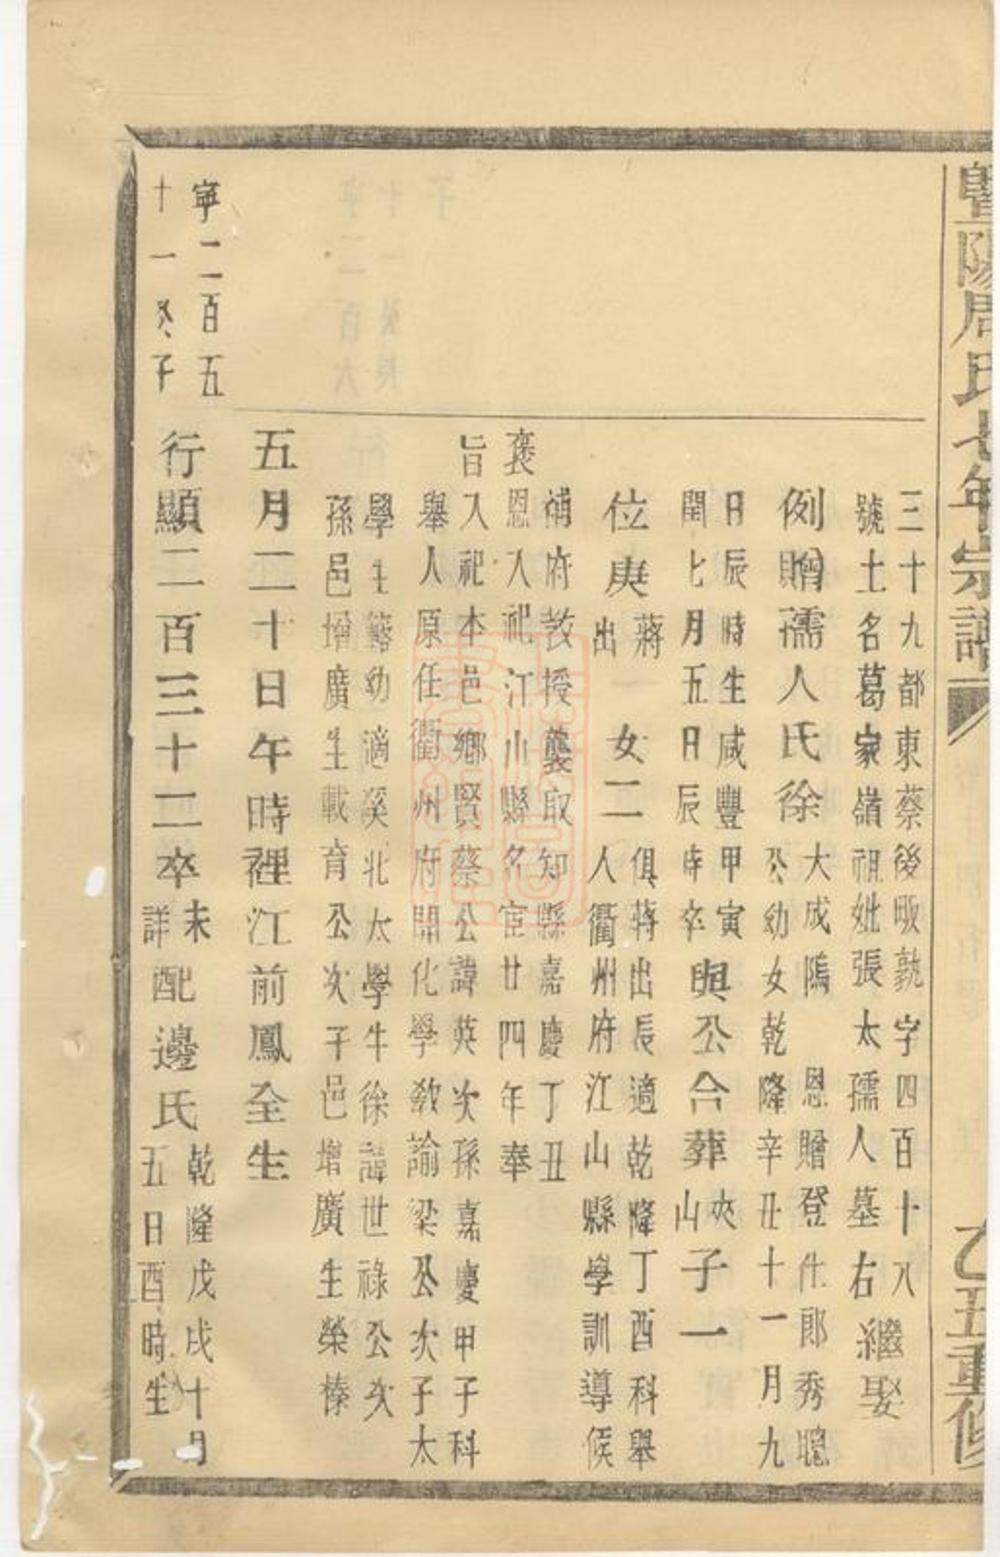 暨陽周氏七年宗譜
乙丑重修
三十九都東蔡後畈孰字四百十八
號土名葛家嶺祖妣張太孺人墓右繼娶
例贈孺人氏徐大成隖 恩贈登仕郎秀聰
公幼女乾隆辛丑十一月九
日辰時生咸豐甲寅
閏七月五日辰時卒與公合葬夾山子一
位庚蔣出 女二俱蔣出長適乾隆丁酉科舉
人衢州府江山縣學訓導候
補府教授襲取知縣嘉慶丁丑
褒恩入祀江山縣名宦廿四年奉
旨入祀本邑鄉賢蔡公諱英次孫嘉慶甲子科
舉人原任衢州府開化學教諭梁公次子太
學生簵幼適溪北太學生徐諱世祿公次
孫邑增廣生載育公次子邑增廣生榮榛
五月二十日午時裡江前鳳全生
寧二百五
十一癸子
行顯二百三十二卒未詳配邊氏乾隆戊戌十月
五日酉時生